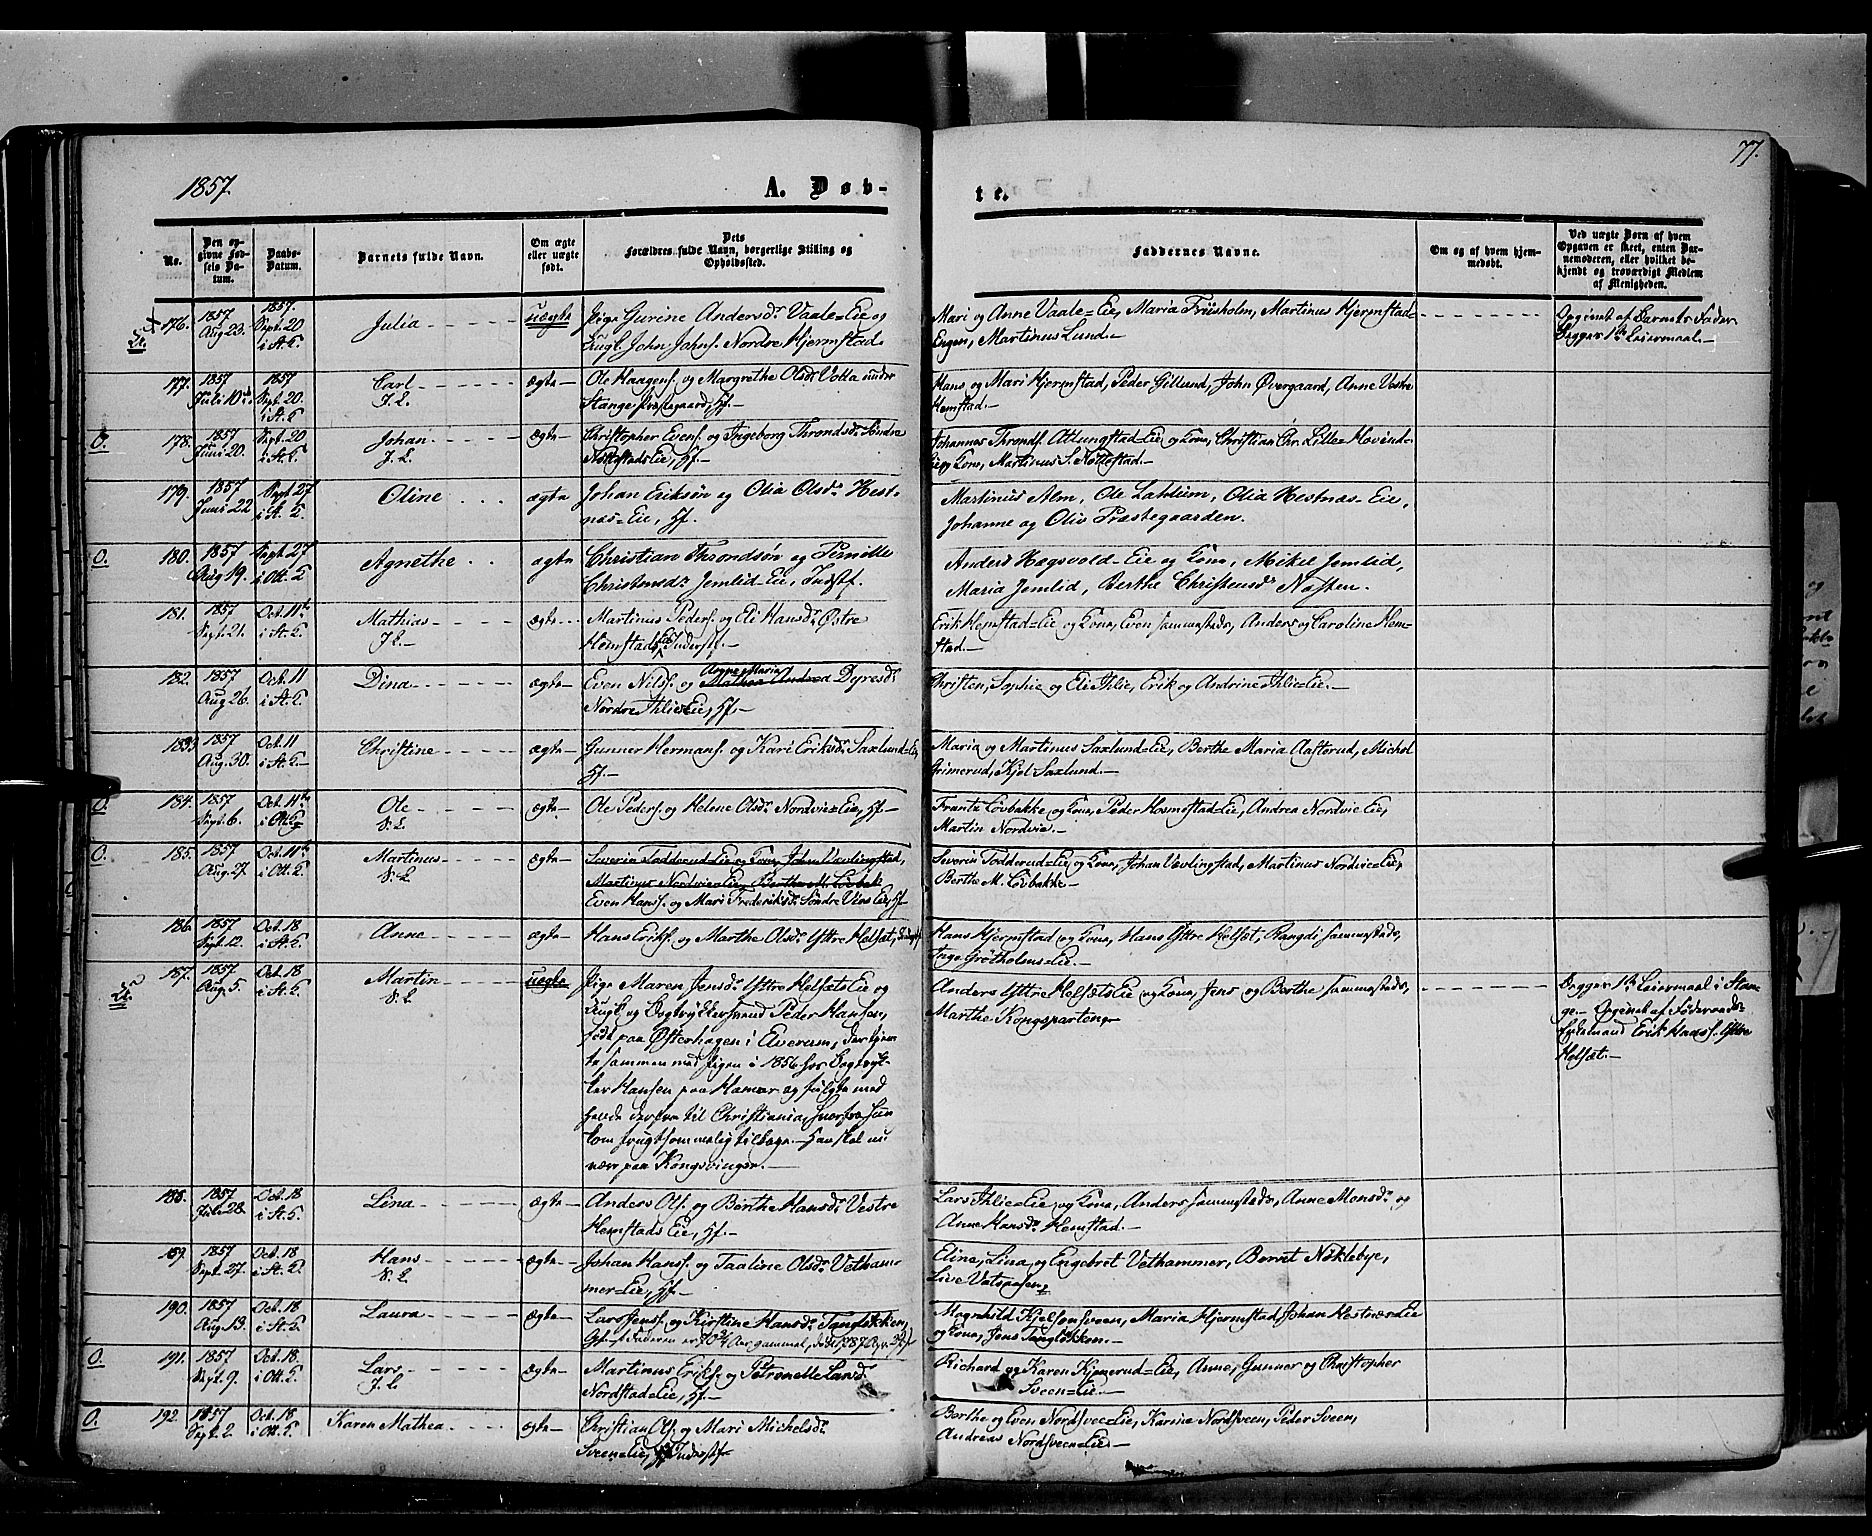 77.
1857.
A. Døb-
te.
No.
Den opgivne Fødsels Datum.
Daabs-Datum.
Barnets fulde Navn.
Om ægte eller uægte født.
Dets Forældres fulde Navn, borgerlige Stilling og Opholdssted.
Faddernes Navne.
Om og af hvem hjemmedøbt.
Ved uægte Børn af hvem Opgaven er skeet, enten Barnemoderen, eller hvilket bekjendt og troværdigt Medlem af Menigheden.
176. 1857 Aug 23. 1857. Sept. 20 i St. K. Julia uægte Pige Gurine Andersdr Vaale-Eie og
Ungk. John Johns. Nordre Hjermstad.
Mari og Anne Vaale-Eie, Maria Friisholm, Martinus Hjermstad-
Engen, Martinus Lund.
Opgivet af Barnets Fader
Begges 1ste Leiermaal.
177. 1857 Juli 10 1857 Sept. 20. i St. K. Carl ægte Ole Haagens. og Margrethe Olsdr Volla under
J. L. Stange Præstegaard, Hf.
Hans og Mari Hjermstad, Peder Gillund, John Øvergaard, Anne Vestre
Hemstad.
O. 178. 1857 Juni 20. Sept. 20 i St. K. Johan ægte Christopher Evens. og Ingeborg Throndsdr Søndre
J. L. Nøttestads Eie, Hf.
Johannes Thronds. Ottungstad-Eie og Kone, Christian Chr. Lille-Hovind-
Eie og Kone, Martinus S. Nøttestad.
179. 1857 Juni 22 Sept. 27 i St. K. Oline ægte Johan Eriksøn og Olia Olsdr Hest-
næs-Eie, Hf.
Martinus Alm, Ole Lahlum, Olia Hestnæs-Eie,
Johanne og Oliv Præstegaarden.
O. 180. 1857 Aug 19. Sept. 27 i Ott. K. Agnethe ægte Christian Throndsøn og Pernille
Christensdr Jemlid-Eie, Inderst.
Anders Hagsvold-Eie og Kone, Mikel Jemlid,
Maria Jemlid, Berthe Christensdr Nashen.
181. 1857 Sept. 21. Oct. 11te i St. K. Mathias ægte Martinus Peders. og Eli Hansdr Østre
J. L. Hemstads Eie, Inderst.
Erik Hemstad-Eie og Kone, Even sammesteds, Anders og Caroline Hem-
stad.
182. 1857 Aug 26. Oct. 11 i St. K. Dina ægte Even Nils. og Mathea Andrea Anne Maria Dyresdr
Nordre Ihlie-Eie, Hf.
Christen, Sophie og Eli Ihlie, Erik og Andrine Ihlie-Eie.
183. 1857 Aug. 30. Oct. 11 i St. K. Christine ægte Gunner Hermans. og Kari Eriksdr Saxlund-Eie,
Hf.
Maria og Martinus Saxlund-Eie, Berthe Maria Aasterud, Michel
Grimerud, Kjel Saxlund.
O. 184. 1857 Sept. 6. Oct. 11te i Ott. K. Ole ægte Ole Peders. og Helene Olsdr Nordvie-Eie, Hf.
S. L.
Frantz Løvbakke og Kone, Peder Hovmstad-Eie, Andrea Nordvie Eie,
Martin Nordvie.
O. 185. 1857 Aug. 27. Oct. 11te i Ott. K. Martinus ægte Severin Todderud-Eie og Kone, Johan Vævlingstad,
S. L. Martinus Nordvie-Eie, Berthe M. Løvbak
Even Hans. og Mari Frederiksdr Søndre Vins Eie, Hf.
Severin Todderud-Eie og Kone, Johan Vævlingstad, Martinus Nordvie-Eie,
Berthe M. Løvbakke.
186. 1857 Sept. 12. Oct. 18 i St. K. Anne ægte Hans Eriks. og Marthe Olsdr Yttre Helsæt,
Hans Hjermstad og Kone, Hans Yttre Helsæt, Rangdi sammesteds,
Inge Grøtholms-Eie.
187. 1857 Aug. 5. Oct. 18 i St. K. Martin uægte Pige Maren Jensdr Yttre Helsæts Eie og
S. L. Ungk. og Bogtrykkersvend Peder Hansen,
født paa Østerhagen i Elverum, der tjen-
te sammen med Pigen i 1856 hos Bogtryk-
ker Hansen paa Hamar og fulgte med
hende derfra til Christiania, hvorfra hun
kom frugtsommelig tilbage. Han skal nu
være paa Kongsvinger.
Anders Yttre Helsæts Eie og Kone, Jens og Berthe sammesteds,
Marthe Kongsparten.
Begges 1ste Leiermaal i Stan-
ge. Opgivet af Føderaads-
Huusmand Erik Hans. Yttre
Helsæt.
188. 1857 Juli 28. Oct. 18 i St. K. Lina ægte Anders Ols. og Berthe Hansdr Vestre
Hemstads Eie, Hf.
Lars Ihlie-Eie og Kone, Anders sammesteds, Anne Monsdr og
Anne Hansdr Hemstad.
189. 1857 Sept. 27. Oct. 18 i St. K. Hans ægte Johan Hans. og Taaline Olsdr Vetham-
S. L. mer-Eie, Hf.
Eline, Lina og Engebret Vethammer, Bernt Nøklebye,
Live Vatspasen.
190. 1857 Aug 13. Oct. 18 i St. K. Laura ægte Lars Jens. og Kirstine Hansdr Tangløkken,
Magnhild Kjelsensveen, Maria Hjermstad, Johan Hestnæs-Eie
og Kone, Jens Tangløkken.
O. 191. 1857 Sept. 9. Oct. 18. i Ott. K. Lars ægte Martinus Eriks. og Petronelle Larsdr
J. L. Nordstad-Eie, Hf.
Richard og Karen Kjemerud-Eie, Anne, Gunner og Christopher
Sveen-Eie.
O. 192. 1857 Sept. 2. Oct. 18 i Ott. K. Karen Mathea ægte Christian Ols. og Mari Michelsdr
Sveen-Eie, Inderst
Berthe og Even Nordsveen-Eie, Karine Nordsveen, Peder Sveen,
Andreas Nordsveen-Eie.